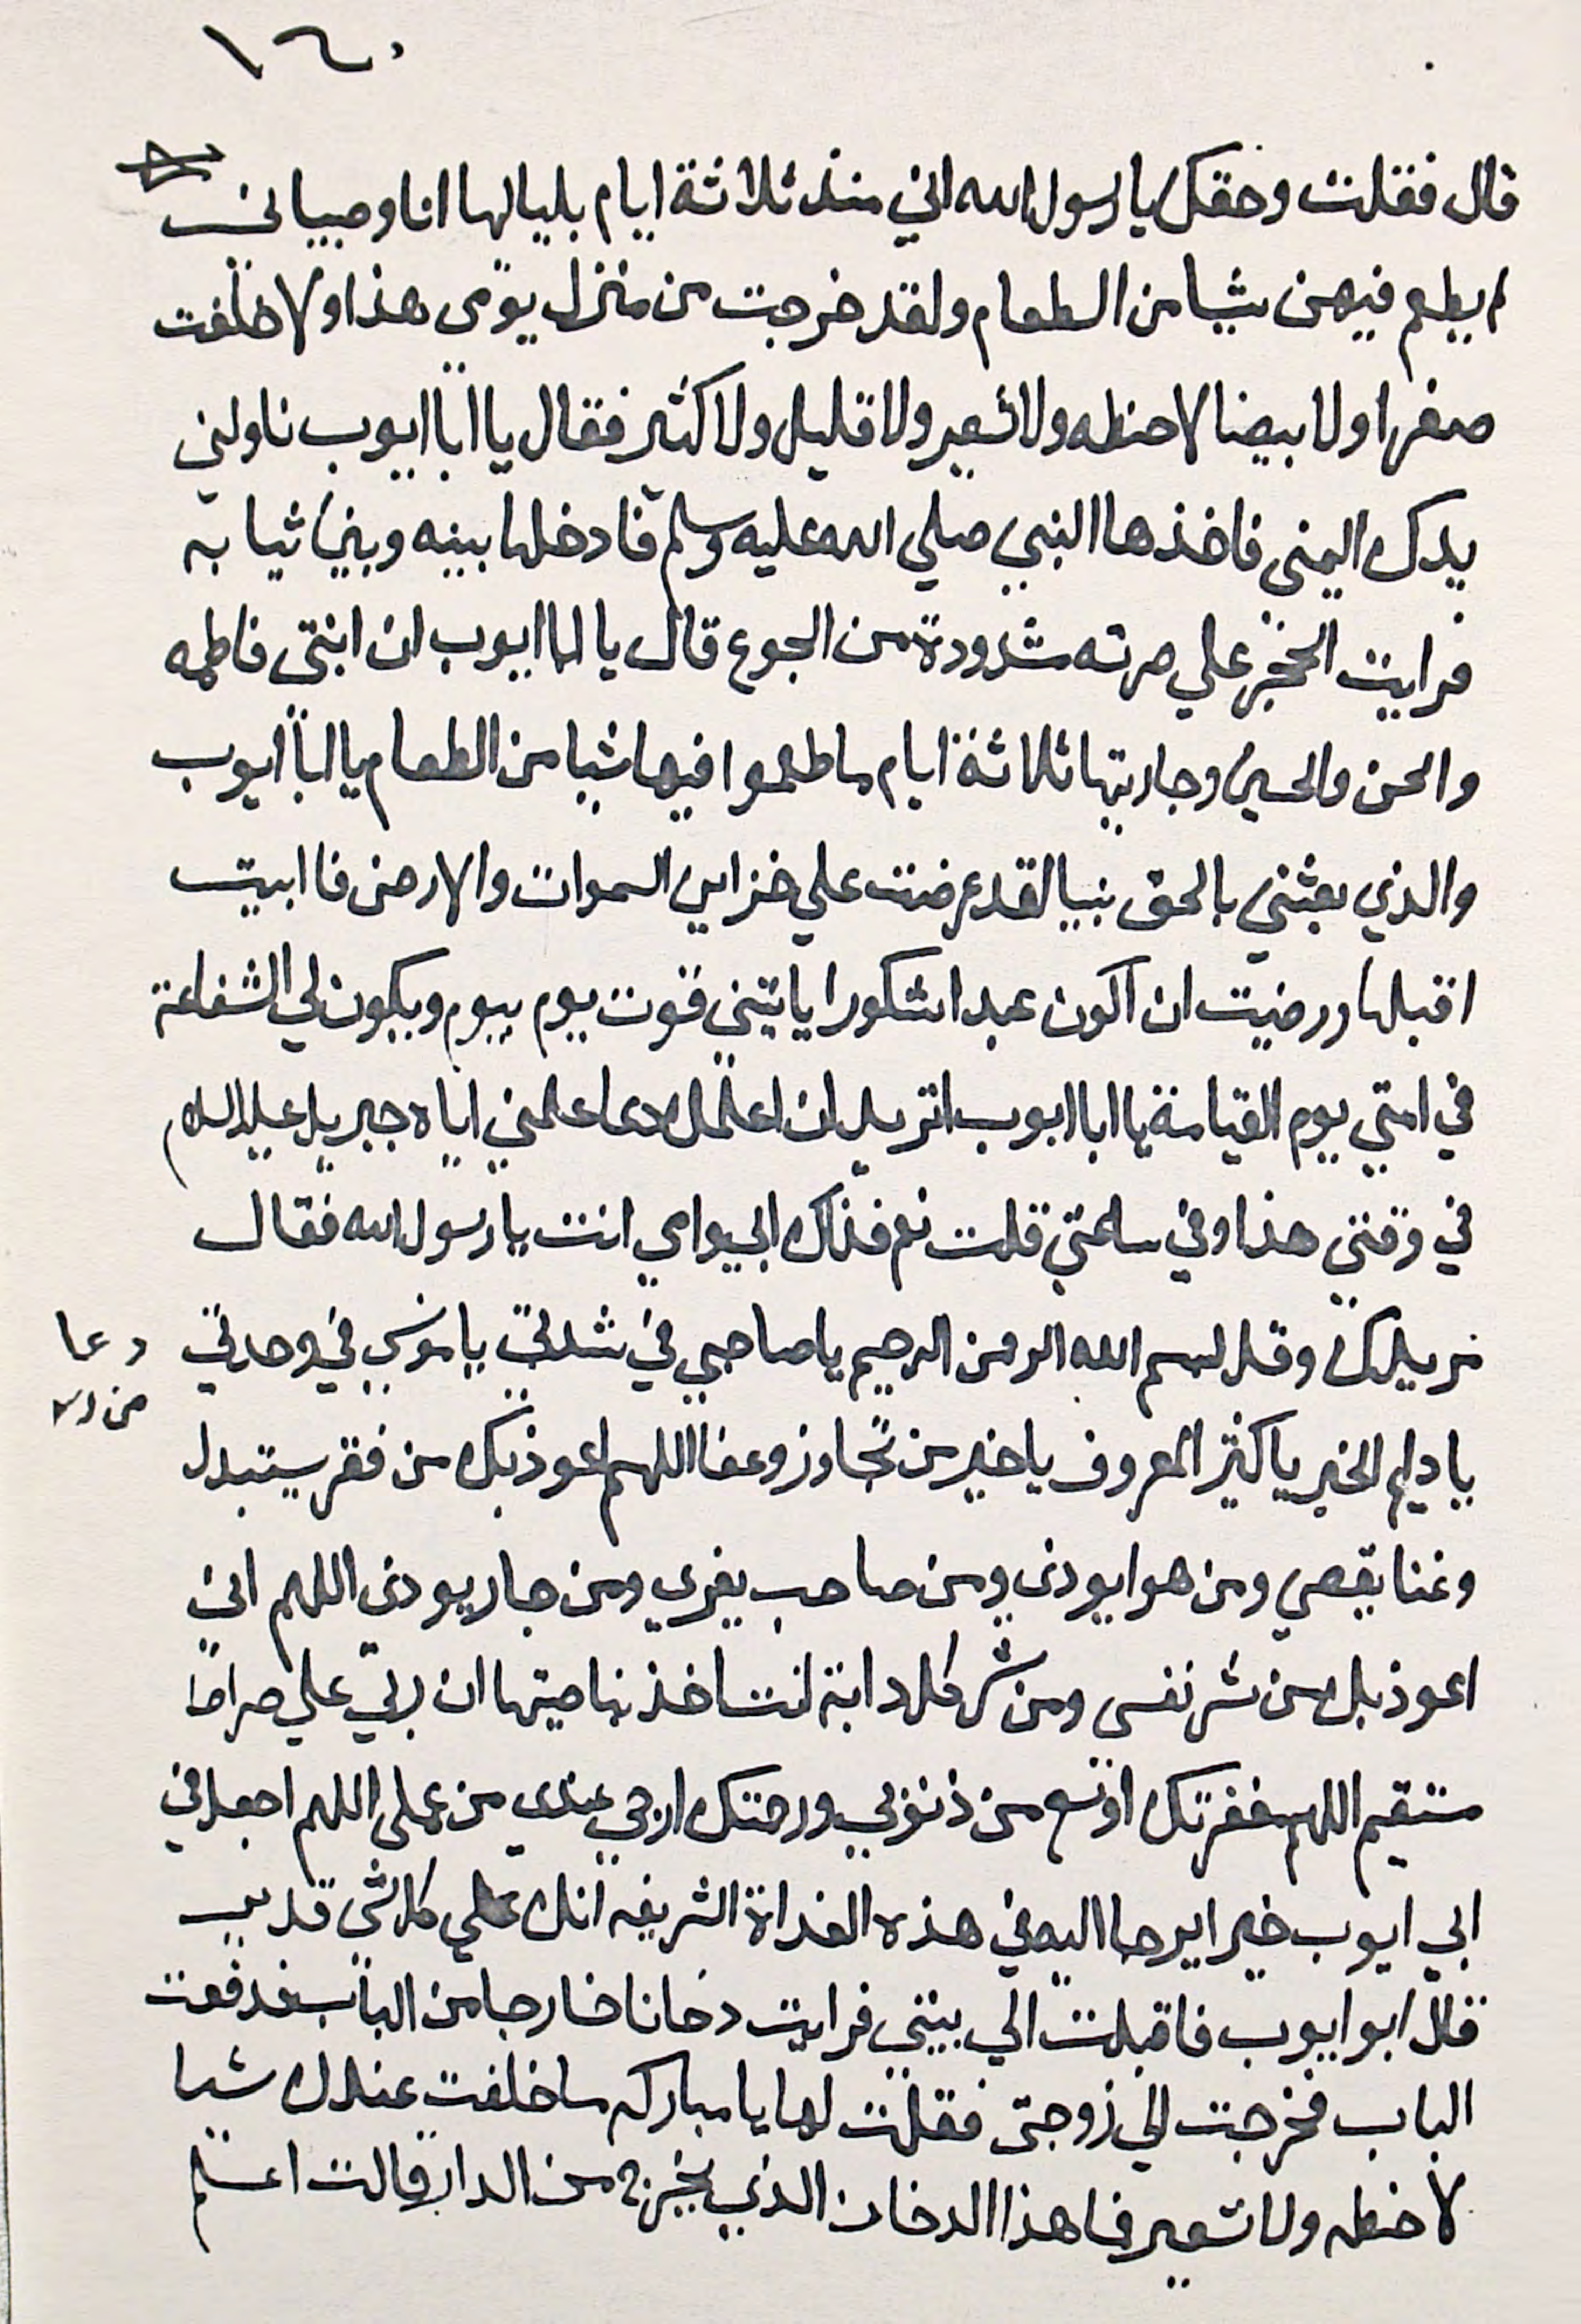 ١٦٠
قال فقلت وحقك يا رسول الله اني منذ ثلاثة ايام بلياليها انا وصبياني
لم يطعم فيهن شيا من الطعام ولقد خرجت من منزل يومى هذا ولا خلفت
صفرا ولا بيضا لا حنطه ولا شعير ولا قليل ولا كثير فقال يا ابا ايوب ناولني
يدك اليمنى فاخذها النبي صلي الله عليه وسلم فادخلها بينه وبين ثيابه
فرايت الحجر علي صرته مشدودة من الجوع قال يا ابا ايوب ان ابنتى فاطمه
والحسن والحسين وجاريتها ثلاثة ايام ما طعموا فيها شيا من الطعام يا ابا ايوب
والذي بعثني بالحق نبيا لقد عرضت علي خزاين السموات والارض فا ابيت
اقبلها ورضيت ان اكون عبدا شكورا ياتيني قوت يوم بيوم ويكون لي الشفاعة
في امتي يوم القيامة يا ابا ايوب اتريد ان اعلمك دعا علمني اياه جبريل عليه السلام
في وقتى هذا وفي ساعتي قلت نعم فداك ابي وامي انت يا رسول الله فقال
يدك وقل بسم الله الرحمن الرحيم يا صاحبي في شدتي يا مونسي في وحدتي
دعا
يا دايم الخير يا كثير المعروف يا خير من تجاوز وعفا اللهم اعوذ بك من فقر يستبدل
وغنا يقصي ومن هوا يودى ومن صاحب يغرى ومن جار يودى اللهم اني
اعوذ بك من شر نفسى ومن شر كل دابة انت اخذ بناصيتها ان ربي علي صراط
مستقيم اللهم مغفرتك اوسع من ذنوبي ورحمتك ارجي عندي من عملى اللهم اجعل في
ابي ايوب خيرا يرجا اليه في هذه الغداة الشريفه انك علي كل شى قدير
قال ابو ايوب فاقبلت الي بيتي فرايت دخانا خارجا من الباب فدفعت
الباب فخرجت الي زوجتى فقلت لها يا مباركه ما خلفت عندك شيا
لا حنطه ولا شعير فما هذا الدخان الذي يخرج من الدار قالت اعلم